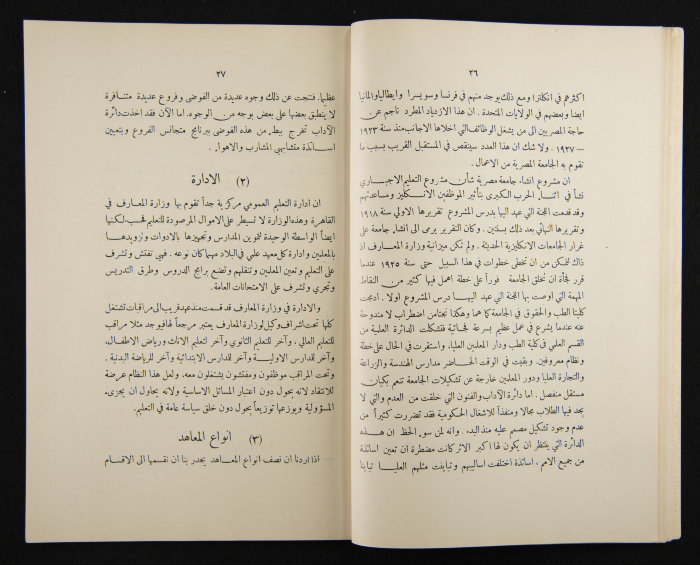 ٢٦
اكثرهم في انكلترا ومع ذلك يوجد منهم في فرنسا وسويسرا وايطاليا والمانيا
ايضا وبعضهم في الولايات المتحدة . ان هذا الازدياد المطرد ناجم عن
حاجة المصريين الى من يشغل الوظائف التي اخلاها الاجانب منذ سنة ١٩٢٣
— ١٩٢٧ . ولا شك ان هذا العدد سينقص في المستقبل القريب بسبب ما
تقوم به الجامعة المصرية من الاعمال .
ان مشروع انشاء جامعة مصرية شأن مشروع التعليم الاجباري
نشأ في اثناء الحرب الكبرى بتأثير الموظفين الانكليز ومساعدتهم
وقد قدمت اللجنة التي عهد اليها بدرس المشروع تقريرها الاولي سنة ١٩١٨
وتقريرها النهائي بعد ذلك بسنتين . وكان التقرير يرمي الى انشاء جامعة على
غرار الجامعات الانكليزية الحديثة . ولم تكن ميزانية وزارة المعارف اذ
ذاك لتمكن من ان تخطى خطوات في هذا السبيل حتى سنة ١٩٢٥ عندما
قرر فجأة ان تخلق الجامعة فوراً على خطة اهمل فيها كثير من النقاط
المهمة التي اوصت بها اللجنة التي عهد اليها درس المشروع اولا . ادمجت
كليتا الطب والحقوق في الجامعة كما هما وهكذا نجتامن اضطراب لا مندوحة
عنه عندما يشرع في عمل عظيم بسرعة فجائية فتشكلت الدائرة العلمية من
القسم العلمي في كلية الطب ودار المعلمين العليا، واستقرت في الحال على خطة
ونظام معروفين . وبقيت في الوقت الحاضر مدارس الهندسة والزراعة
والتجارة العليا ودور المعلمين خارجة عن تشكيلات الجامعة تنعم بكيان
مستقل منفصل . اما دائرة الآداب والفنون التي خلقت من العدم والتي لا
يجد فيها الطلاب مجالا ومنفذاً للاشغال الحكومية فقد تضررت كثيراً من
عدم وجود تشكيل مصمم عليه منذ البدء . وانه لمن سوء الحظ ان هذه
الدائرة التي ينتظر ان يكون لها اكبر الاثر كانت مضطرة ان تعين اساتذة
من جميع الامم ، اساتذة اختلفت اساليبهم وتباينت مثلهم العليا تباينا
٢٧
عظيما. فنتجت عن ذلك وجوه عديدة من الفوضى وفروع عديدة متنافرة
لا ينطبق بعضها على بعض بوجه من الوجوه. اما الآن فقد اخذت دائرة
الآداب تخرج ببطء من هذه الفوضى ببرنامج متجانس الفروع وبتعيين
اساتذة متشابهي المشارب والاهواء .
(٢) الادارة
ان ادارة التعليم العمومي مركزية جداً تقوم بها وزارة المعارف في
القاهرة وهذه الوزارة لا تسيطر على الاموال المرصودة للتعليم فحسب، لكنها
ايضاً الواسطة الوحيدة لتموين المدارس وتجهيزها بالادوات وتزويدها
بالمعلمين وادارة كل معهد علمي في البلاد مهما كان نوعه . فهي تفتش وتشرف
على التعليم وتعين المعلمين وتنقلهم وتضع برامج الدروس وطرق التدريس
وتجري وتشرف على الامتحانات العامة.
والادارة في وزارة المعارف قد قسمت منذ عهد قريب الى مراقبات تشتغل
كلها تحت اشراف وكيل لوزارة المعارف يعتبر مرجعاً لها فيوجد مثلا مراقب
للتعليم العالي ، وآخر للتعليم الثانوي وآخر لتعليم الاناث ورياض الاطفال،
وآخر للمدارس الاولية وآخر للمدارس الابتدائية وآخر للرياضة البدنية .
وتحت المراقب موظفون ومفتشون يشتغلون معه. ولعل هذا النظام عرضة
للانتقاد لانه يحول دون اعتبار المسائل الاساسية ولانه يحاول ان يجزىء
المسؤولية ويوزعها توزيعاً يحول دون خلق سياسة عامة في التعليم.
(٣) انواع المعاهد
اذا اردنا ان نصف انواع المعاهد يجدر بنا ان نقسمها الى الاقسام